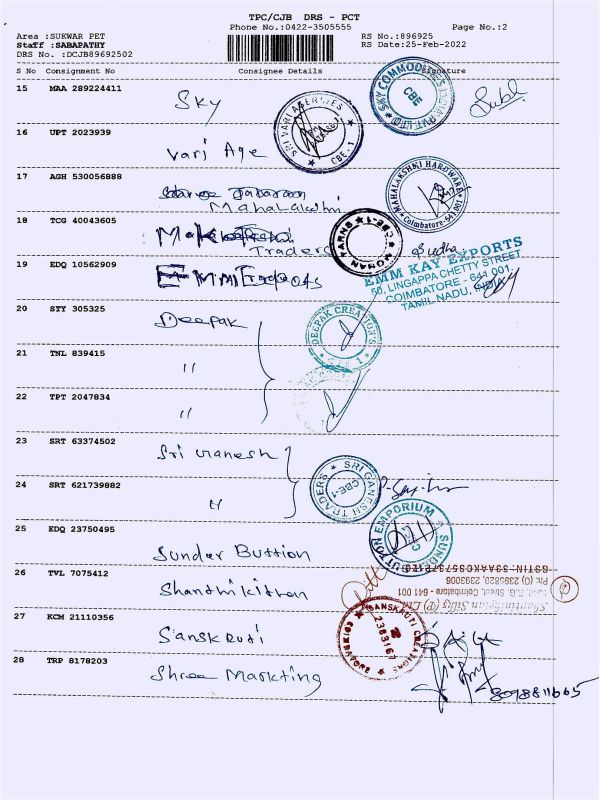 TPC/CJB DRS - PCT
Phone No.:0422-3505555
Page No.:2
Area :SUKWAR PET
RS No.:896925
Staff :SABAPATHY
RS Date:25-Feb-2022
DRS No. :DCJB89692502
S No Consignment No Consignee Details Signature
15 MAA 289224411
Sky
SKY COMMODITIES INDIA PVT LTD
CBE
16 UPT 2023939
Vari Age
SRI VARI AGENCIES
CBE - 1
17 AGH 530056888
Mahalakshmi
MAHALAKSHMI HARDWARE
Coimbatore-641 001
18 TCG 40043605
Traders
MOHAN YARNS
CBE-1
Sudha
19 EDQ 10562909
EMM KAY EXPORTS
50, LINGAPPA CHETTY STREET
COIMBATORE - 641 001.
TAMIL NADU, INDIA
20 STY 305325
Deepak
DEEPAK CREATION'S
CBE 1
21 TNL 839415
"
22 TPT 2047834
"
23 SRT 63374502
Sri Ganesh
24 SRT 621739882
"
SRI GANESH TRADERS
CBE-1
25 EDQ 23750495
Sunder Buttion
SUNDER BUTTON EMPORIUM
26 TVL 7075412
Shanthikithan
Silks (P) Ltd
R.G. Street, Coimbatore - 641 001
27 KCM 21110356
Sanskruti
SANSKRUTI CREATIONS
COIMBATORE
28 TRP 8178203
Shree Markting
8098811665